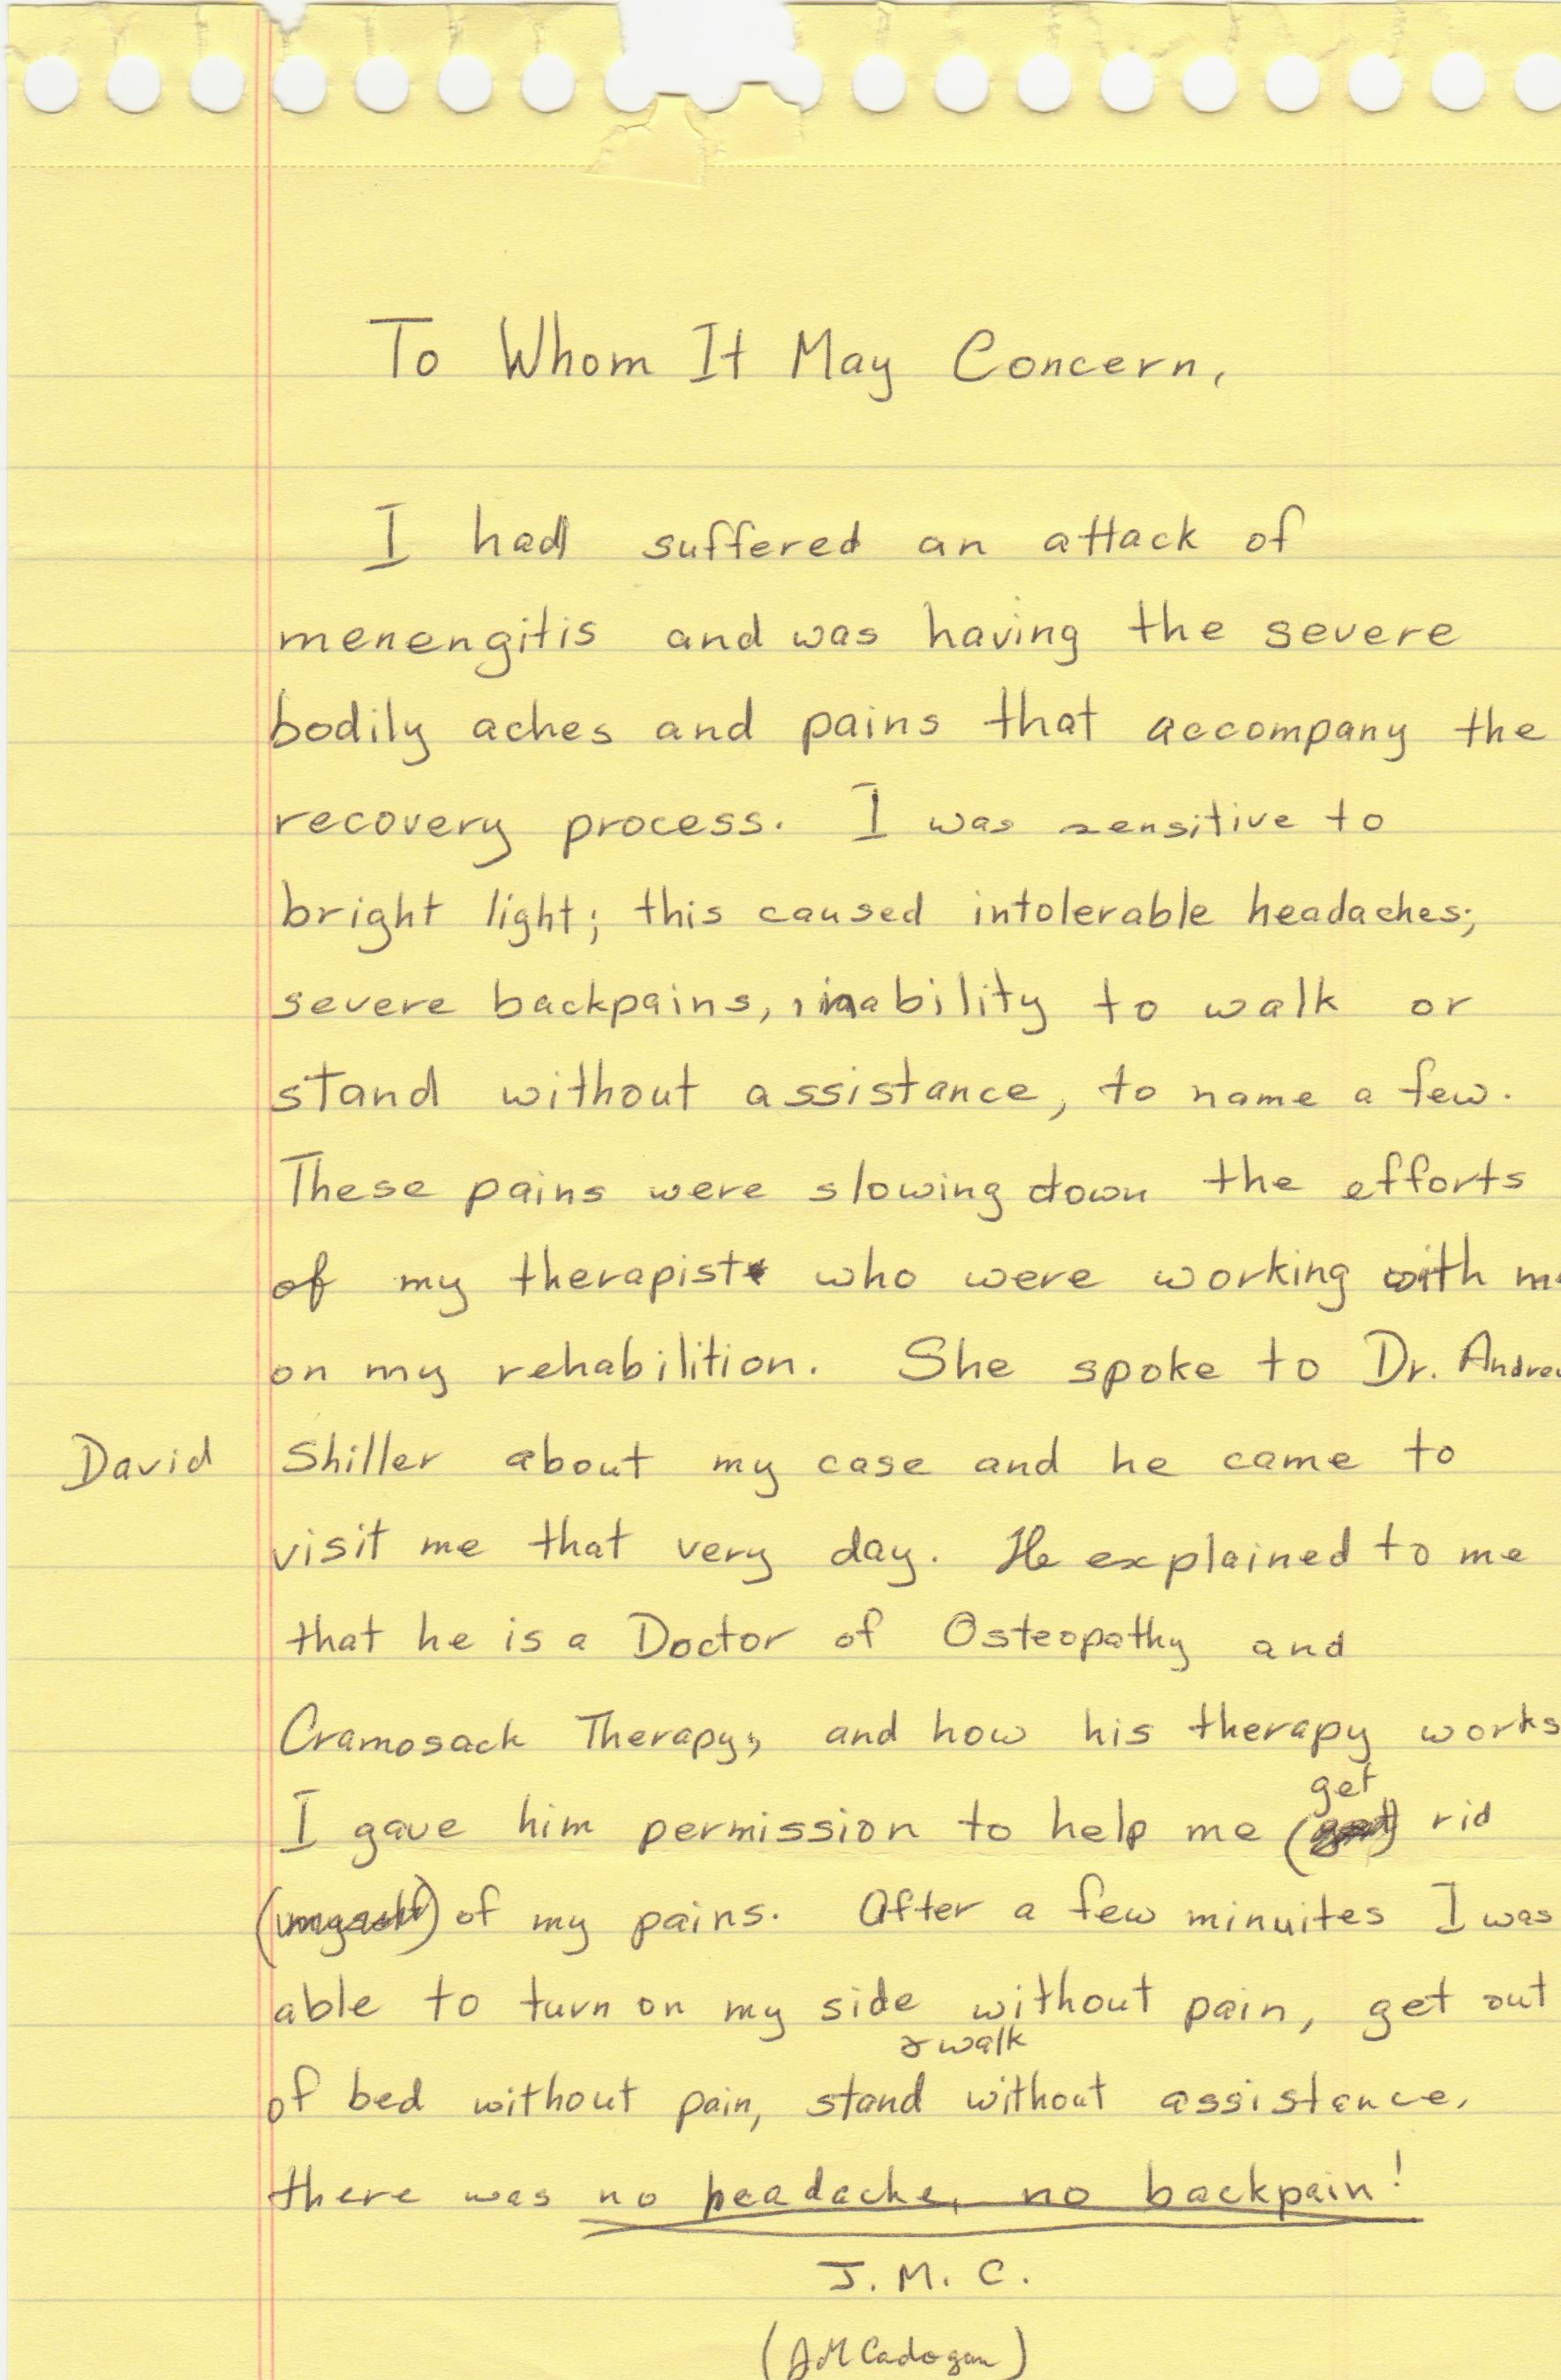 To Whom It May Concern,
I had suffered an attack of
menengitis and was having the severe
bodily aches and pains that accompany the
recovery process. I was sensitive to
bright light; this caused intolerable headaches;
severe backpains, inability to walk or
stand without assistance, to name a few.
These pains were slowing down the efforts
of my therapist who were working with me
on my rehabilition. She spoke to Dr. Andrew
David Shiller about my case and he came to
visit me that very day. He explained to me
that he is a Doctor of Osteopathy and
Cramosack Therapy, and how his therapy works
get
I gave him permission to help me ( ) rid
( ) of my pains. After a few minuites I was
able to turn on my side without pain, get out
& walk
of bed without pain, stand without assistance,
there was no headache, no backpain!
J. M. C.
(JM Cadogan)